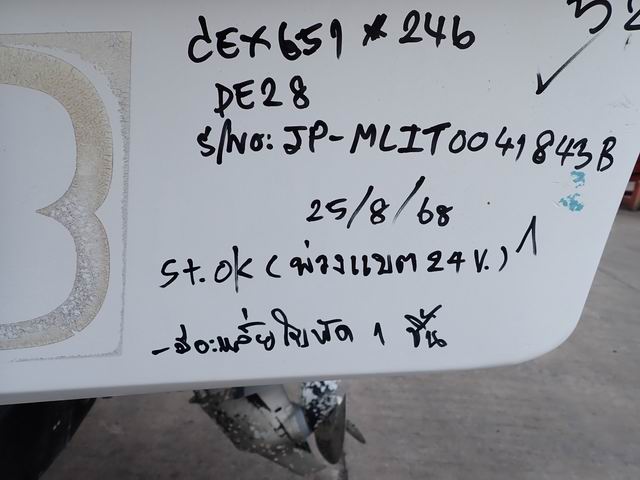 52
CEX651*246
DE28
S/NO: JP-MLIT0041843B
25/8/68
St. OK (พ่วงแบต 24 V.) 1
ใบพัด 1 ชิ้น